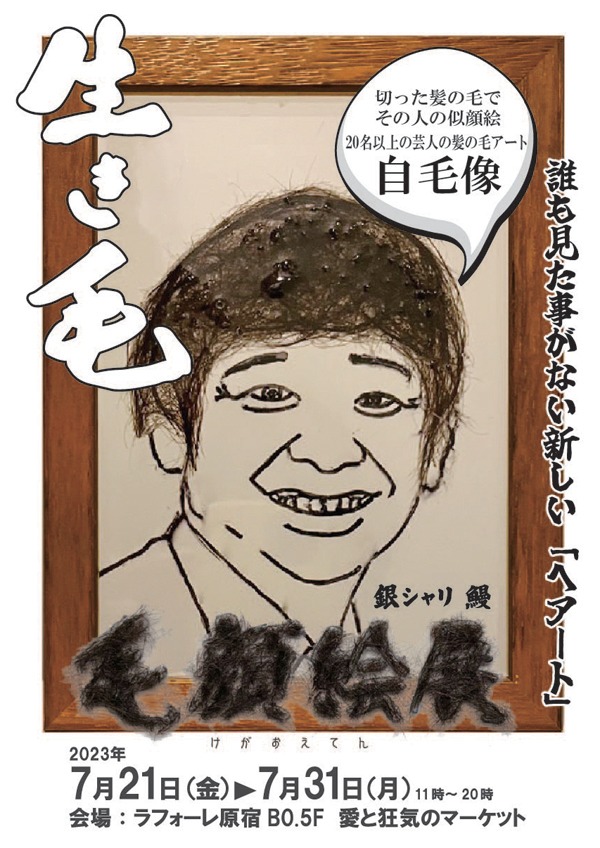 生き毛
切った髪の毛で
その人の似顔絵
20名以上の芸人の髪の毛アート
自毛像
誰も見た事がない新しい「ヘアート」
銀シャリ 鰻
毛顔絵展
けがおえてん
2023年
7月21日（金）▶7月31日（月）11時～20時
会場：ラフォーレ原宿 B0.5F 愛と狂気のマーケット